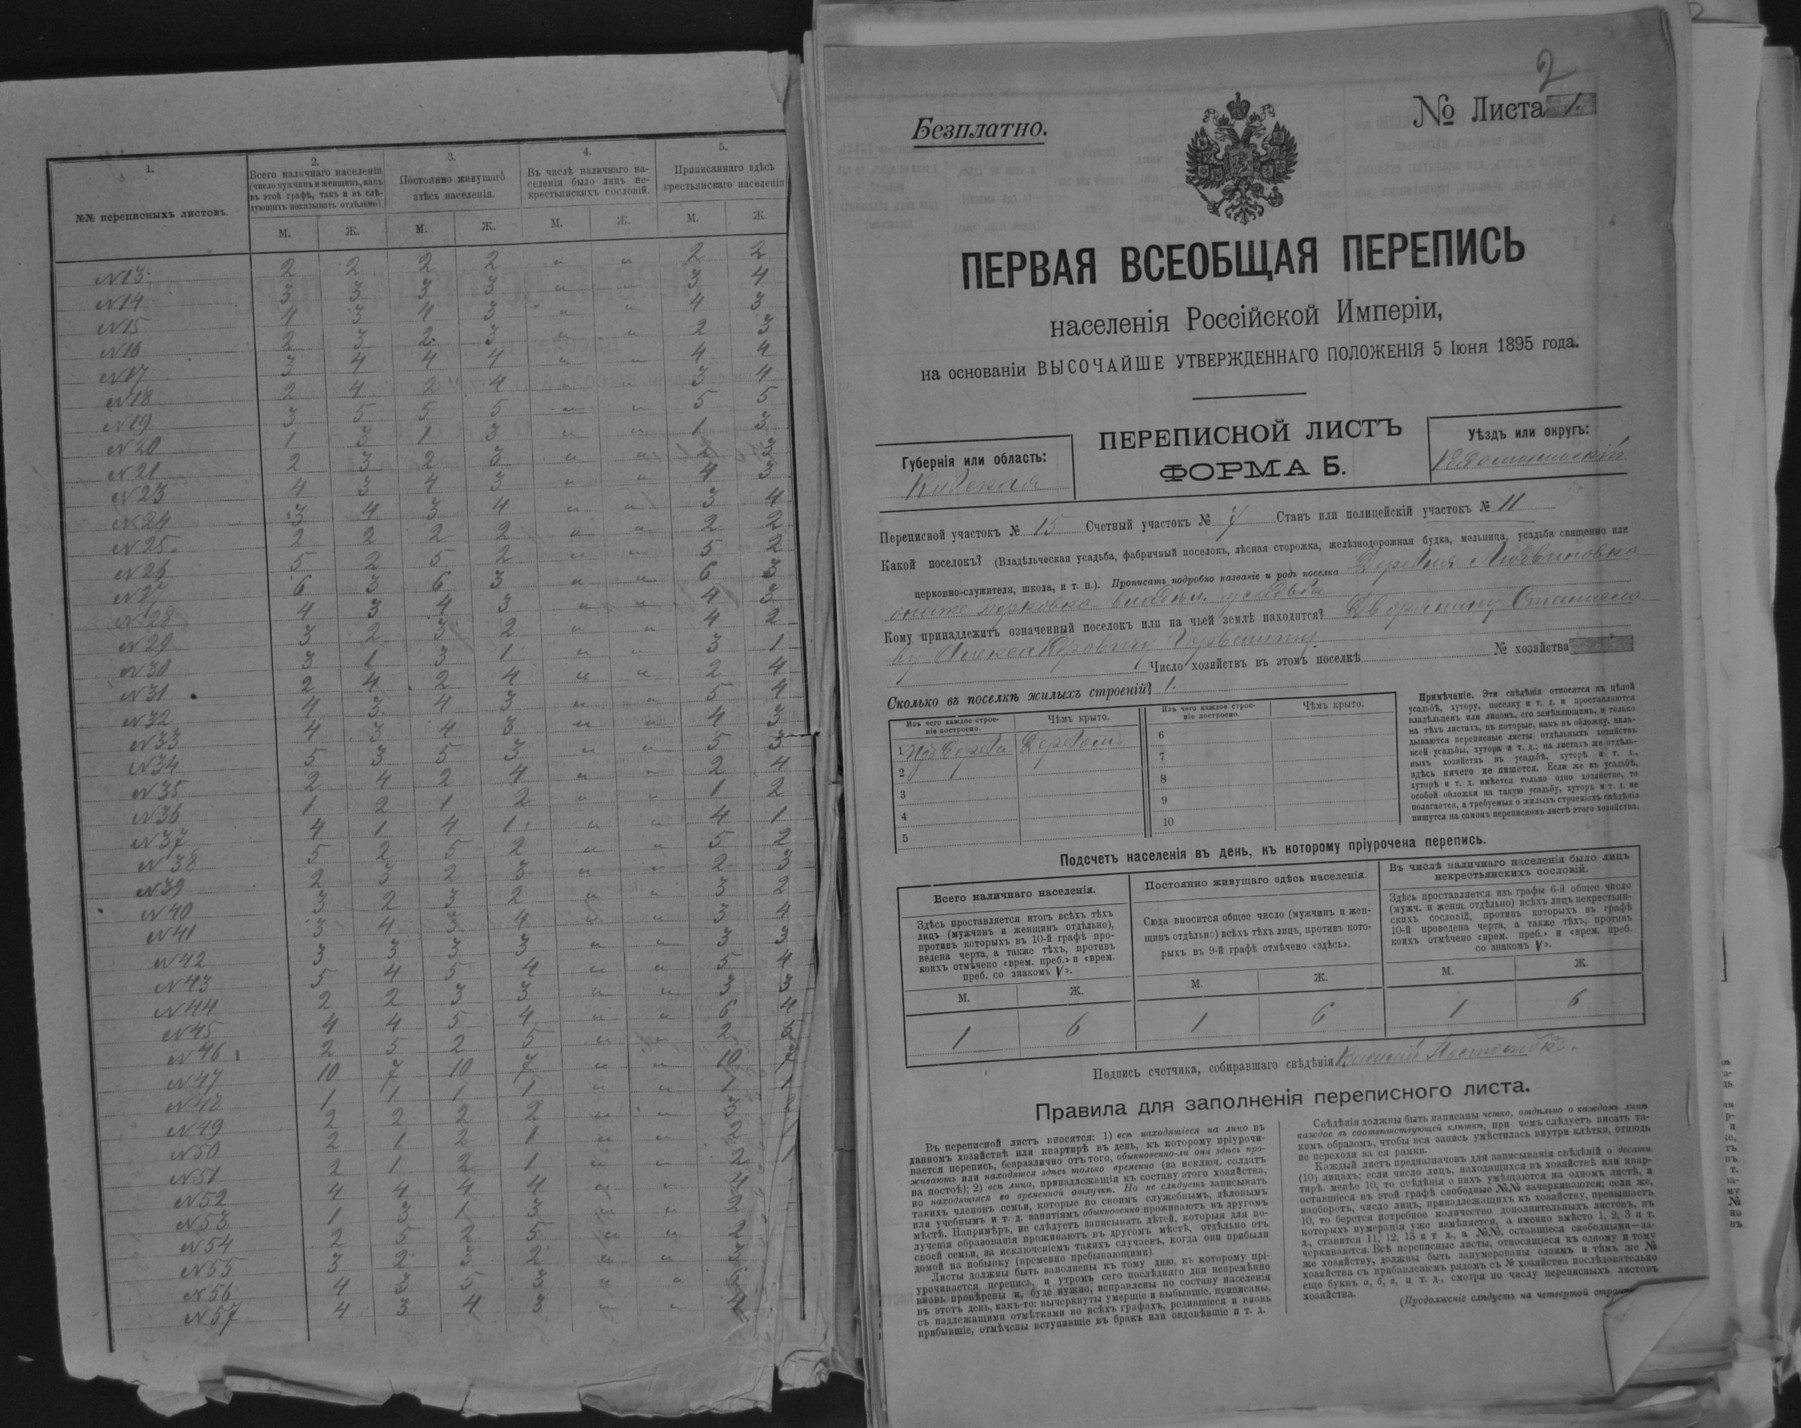 1.
2.
3.
4.
5.
№№ переписныхъ листовъ.
Всего наличнаго населенія (число мужчинъ и женщинъ, какъ въ этой графѣ, такъ и въ слѣдующихъ показывать отдѣльно).
Постоянно живущаго здѣсь населенія.
Въ числѣ наличнаго населенія было лицъ некрестьянскихъ сословій.
Приписаннаго здѣсь крестьянскаго населенія
М. Ж. М. Ж. М. Ж. М. Ж.
№13 2 2 2 2 „ „ 2 2
№14 3 3 3 3 „ „ 3 4
№15 4 3 4 3 „ „ 4 3
№16 2 3 2 3 „ „ 2 3
№17 3 4 4 4 „ „ 4 4
№18 2 4 2 4 „ „ 3 4
№19 3 5 5 5 „ „ 5 5
№20 1 3 1 3 „ „ 1 3
№21 2 3 2 3 „ „ 2 3
№23 4 3 4 3 „ „ 4 3
№24 3 4 3 4 „ „ 3 4
№25 2 2 2 2 „ „ 2 2
№26 5 2 5 2 „ „ 5 2
№27 6 3 6 3 „ „ 6 3
№28 4 3 4 3 „ „ 4 3
№29 3 2 3 2 „ „ 4 2
№30 3 1 3 1 „ „ 3 1
№31 2 4 2 4 „ „ 2 4
№32 4 3 4 3 „ „ 5 4
№33 4 3 4 3 „ „ 4 3
№34 5 3 5 3 „ „ 5 3
№35 2 4 2 4 „ „ 2 4
№36 1 2 1 2 „ „ 1 2
№37 4 1 4 1 „ „ 4 1
№38 5 2 5 2 „ „ 5 2
№39 2 3 2 3 „ „ 2 3
№40 3 2 3 2 „ „ 3 2
№41 3 4 3 4 „ „ 3 4
№42 3 3 3 3 „ „ 3 3
№43 5 4 5 4 „ „ 5 4
№44 2 2 3 3 „ „ 3 3
№45 4 4 5 4 „ „ 6 4
№46 2 5 2 5 „ „ 2
№47 10 7 10 7 „ „ 10 7
№48 1 1 1 1 „ „ 1 1
№49 2 2 2 2 „ „
№50 2 1 2 1 „ „
№51 2 1 2 1 „ „
№52 4 4 4 4 „ „
№53 1 3 1 3 „ „
№54 2 5 2 5 „ „
№55 3 2 3 2 „ „
№56 4 3 5 3 „ „
№57 4 3 4 3 „ „
2
Безплатно.
№ Листа 1.
ПЕРВАЯ ВСЕОБЩАЯ ПЕРЕПИСЬ
населенія Россійской Имперіи,
на основаніи ВЫСОЧАЙШЕ УТВЕРЖДЕННАГО ПОЛОЖЕНІЯ 5 Іюня 1895 года.
ПЕРЕПИСНОЙ ЛИСТЪ
ФОРМА Б.
Губернія или область:
Кіевская
Уѣздъ или округъ:
Радомысльскій
Переписной участокъ № 15 Счетный участокъ № 7 Станъ или полицейскій участокъ № 11
Какой поселокъ? (Владѣльческая усадьба, фабричный поселокъ, лѣсная сторожка, желѣзнодорожная будка, мельница, усадьба священно или
церковно-служителя, школа, и т. п.). Прописать подробно названіе и родъ поселка Деревня Людвиновка
усадьба
Кому принадлежитъ означенный поселокъ или на чьей землѣ находится? Дворянину Станисла
ву Александровичу
Число хозяйствъ въ этомъ поселкѣ № хозяйства
Сколько въ поселкѣ жилыхъ строеній? 1.
Изъ чего каждое строеніе построено.
Чѣмъ крыто.
Изъ чего каждое строеніе построено.
Чѣмъ крыто.
1 Изъ дерева Деревом. 6
2 7
3 8
4 9
5 10
Примѣчаніе. Эти свѣдѣнія относятся къ цѣлой
усадьбѣ, хутору, поселку и т. д. и проставляются
владѣльцемъ или лицомъ, его замѣняющимъ, и только
на тѣхъ листахъ, въ которые, какъ въ обложку, вкла-
дываются переписные листы отдѣльныхъ хозяйствъ
всей усадьбы, хутора и т. д.; на листахъ же отдѣль-
ныхъ хозяйствъ въ усадьбѣ, хуторѣ и т. д.,
здѣсь ничего не пишется. Если же въ усадьбѣ,
хуторѣ и т. д. имѣется только одно хозяйство, то
особой обложки на такую усадьбу, хуторъ и т. д. не
полагается, а требуемыя о жилыхъ строеніяхъ свѣдѣнія
пишутся на самомъ переписномъ листѣ этого хозяйства.
Подсчетъ населенія въ день, къ которому пріурочена перепись.
Всего наличнаго населенія.
Постоянно живущаго здѣсь населенія.
Въ числѣ наличнаго населенія было лицъ некрестьянскихъ сословій.
Здѣсь проставляется итогъ всѣхъ тѣхъ
лицъ (мужчинъ и женщинъ отдѣльно),
противъ которыхъ въ 10-й графѣ про-
ведена черта, а также тѣхъ, противъ
коихъ отмѣчено «врем. преб.» и «врем.
преб. со знакомъ V».
Сюда вносится общее число (мужчинъ и жен-
щинъ отдѣльно) всѣхъ тѣхъ лицъ, противъ кото-
рыхъ въ 9-й графѣ отмѣчено «здѣсь».
Здѣсь проставляется изъ графы 6-й общее число
(мужч. и женщ. отдѣльно) всѣхъ лицъ некрестьян-
скихъ сословій, противъ которыхъ въ графѣ
10-й проведена черта, а также тѣхъ, противъ
коихъ отмѣчено «врем. преб.» и «врем. преб.
со знакомъ V».
М. Ж. М. Ж. М. Ж.
1 6 1 6 1 6
Подпись счетчика, собиравшаго свѣдѣнія
Правила для заполненія переписного листа.
Въ переписной листъ вносятся: 1) всѣ находящіеся на лицо въ
данномъ хозяйствѣ или квартирѣ въ день, къ которому пріурочи-
вается перепись, безразлично отъ того, обыкновенно-ли они здѣсь про-
живаютъ или находятся здѣсь только временно (за исключ. солдатъ
на постоѣ); 2) всѣ лица, принадлежащія къ составу этого хозяйства,
но находящіеся во временной отлучкѣ. Но не слѣдуетъ записывать
такихъ членовъ семьи, которые по своимъ служебнымъ, дѣловымъ
или учебнымъ и т. д. занятіямъ обыкновенно проживаютъ въ другомъ
мѣстѣ. Напримѣръ, не слѣдуетъ записывать дѣтей, которыя для по-
лученія образованія проживаютъ въ другомъ мѣстѣ, отдѣльно отъ
своей семьи, за исключеніемъ такихъ случаевъ, когда они прибыли
домой на побывку (временно пребывающими).
Листы должны быть заполнены къ тому дню, къ которому прі-
урочивается перепись, и утромъ сего послѣдняго дня непремѣнно
вновь провѣрены и, буде нужно, исправлены по составу населенія
въ этотъ день, какъ-то: вычеркнуты умершіе и выбывшіе, приписаны,
съ надлежащими отмѣтками во всѣхъ графахъ, родившіеся и вновь
прибывшіе, отмѣчены вступившіе въ бракъ или овдовѣвшіе и т. д.
Свѣдѣнія должны быть написаны четко, отдѣльно о каждомъ лицѣ
каждое въ соотвѣтствующей клѣткѣ, при чемъ слѣдуетъ писать та-
кимъ образомъ, чтобы вся запись умѣстилась внутри клѣтки, отнюдь
не переходя за ея рамки.
Каждый листъ предназначенъ для записыванія свѣдѣній о десяти
(10) лицахъ; если число лицъ, находящихся въ хозяйствѣ или квар-
тирѣ, менѣе 10, то свѣдѣнія о нихъ умѣщаются на одномъ листѣ, и
оставшіеся въ этой графѣ свободные №№ зачеркиваются; если же,
наоборотъ, число лицъ, принадлежащихъ къ хозяйству, превышаетъ
10, то берется потребное количество дополнительныхъ листовъ, въ
которыхъ нумерація уже измѣняется, а именно вмѣсто 1, 2, 3 и т.
д., ставится 11, 12, 13 и т. д., а №№, оставшіеся свободными—за-
черкиваются. Всѣ переписные листы, относящіеся къ одному и тому
же хозяйству, должны быть занумерованы однимъ и тѣмъ же №
хозяйства съ прибавленіемъ рядомъ съ № хозяйства послѣдовательно
еще буквъ а, б, в, и т. д., смотря по числу переписныхъ листовъ
хозяйства.
(Продолженіе слѣдуетъ на четвертой стран